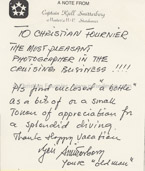 A NOTE FROM
Captain Kjell Smitterberg
TO CHRISTIAN FOURNIER
THE MOST PLEASANT
PHOTOGRAPHER IN THE
CRUISING BUSINESS !!!!
Pls find enclosed a bottle
as a bit of or a small
token of appreciation for
a splendid diving.
Thanks Happy Vacation
Kjell Smitterberg
Your "old man"